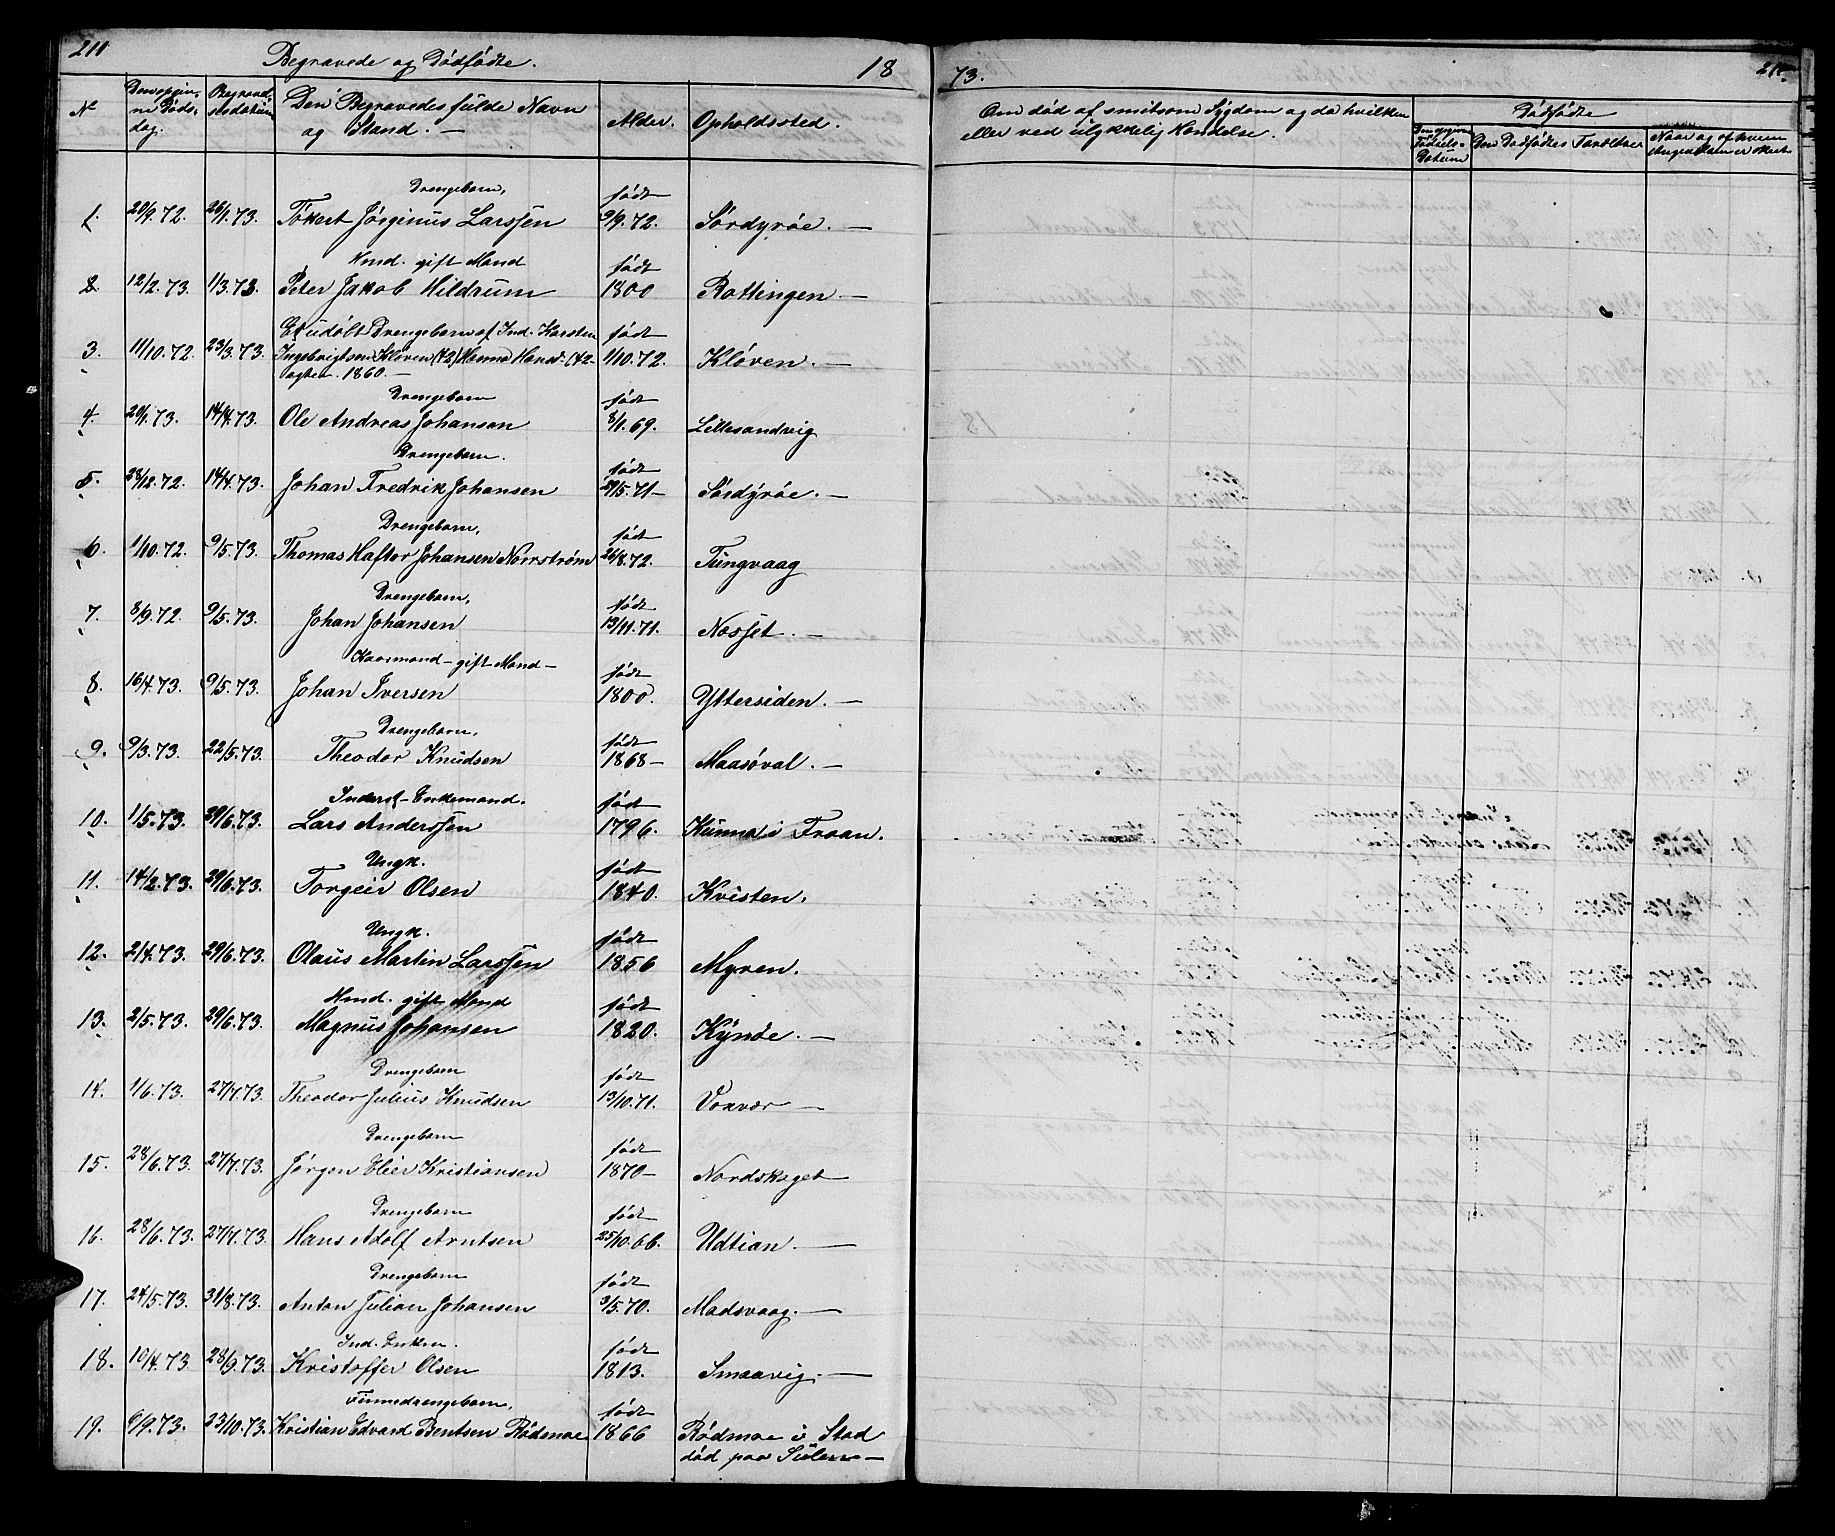 211
Begravede og Dødfødte.
18
73.
No
Den opgiv-
ne Døds-
dag.
Begravel-
sesdatum
Den Begravedes fulde Navn
og Stand. —
Alder.
Opholdssted.
Om død af smitsom Sygdom og da hvilken
eller ved ulykkelig Hændelse.
Dødfødte
Den opgivne
Fødsels-
Datum
Den Dødfødtes Forældre
Naar og af hvem
Drengebarn,
1. 20/9.72. 26/1.73. Tøkert Jørginus Larssen født 9/9.72. Sørdyrøe. —
Kmd. gift Mand
2. 12/2.73. 1/3.73. Peter Jakob Hildrum født 1800 Rottingen. —
Et udøbt Drengebarn af Ind. Karsten
3. 11/10.72. 23/3.73. Ingebrigtsen Kløven (72) Hanna Hansd. (42- født 1/10.72. Kløven. —
1860. —
Drengebarn
4. 20/1.73. 14/4.73. Ole Andreas Johansen født 8/1.69. Lillesandvig
Drengebarn.
5. 28/12.72. 14/4.73. Johan Fredrik Johansen født 29/5.71— Sørdyrøe. —
Drengebarn,
6. 1/10.72. 9/5.73. Thomas Haftor Johansen Norrstrøm født 26/8.72. Tungvaag
Drengebarn,
7. 8/9.72 9/5.73. Johan Johansen født 13/11.71. Nosset. —
Kaarmand – gift Mand –
8. 16/4.73. 9/5.73. Johan Iversen født 1800. Yttersiden. —
Drengebarn,
9. 9/3.73. 22/5.73. Theodor Knudsen født 1868— Maasøval. —
Inderst – Enkemand.
10. 1/5.73. 29/6.73. Lars Anderssen født 1796. Kunna i Froan.
Ungk.
11. 14/2.73. 29/6.73. Torgeir Olsen født 1840. Kvisten.
Ungk.
12. 21/4.73. 29/6.73. Olaus Martin Larssen født 1856 Myren.
Hmd. gift Mand
13. 2/5.73. 29/6.73. Magnus Johansen født 1820. Kynøe. —
Drengebarn
14. 1/6.73. 27/7.73. Theodor Julius Knudsen født 13/10.71. Voxvær —
Drengebarn
15. 28/6.73. 27/7.73. Jørgen Elier Kristiansen født 1870— Nordskaget
Drengebarn
16. 28/6.73. 27/7.73. Hans Adolf Arntsen født 25/10.66. Udtian. —
Drengebarn
17. 24/5.73. 31/8.73. Anton Julian Johansen født 3/5.70. Madsvaag. —
Ind. Enkem.
18. 10/4.73 28/9.73. Kristoffer Olsen født 1813. Smaavig. —
Finnedrengebarn,
19. 6/9.73. 23/10.73. Kristian Edvard Bentsen Rødmoe født 1866 Rødmoe i Stod
død paa Sulen —